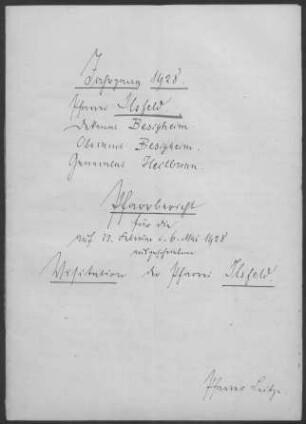 Jahrgang 1928.
Pfarrei Ilsfeld
Dekanat Besigheim.
Oberamt Besigheim.
Generalat Heilbronn.
Pfarrbericht
für die
auf 12. Februar u. 6. Mai 1928
ausgeschriebene
Visitation der Pfarrei Ilsfeld.
Pfarrer